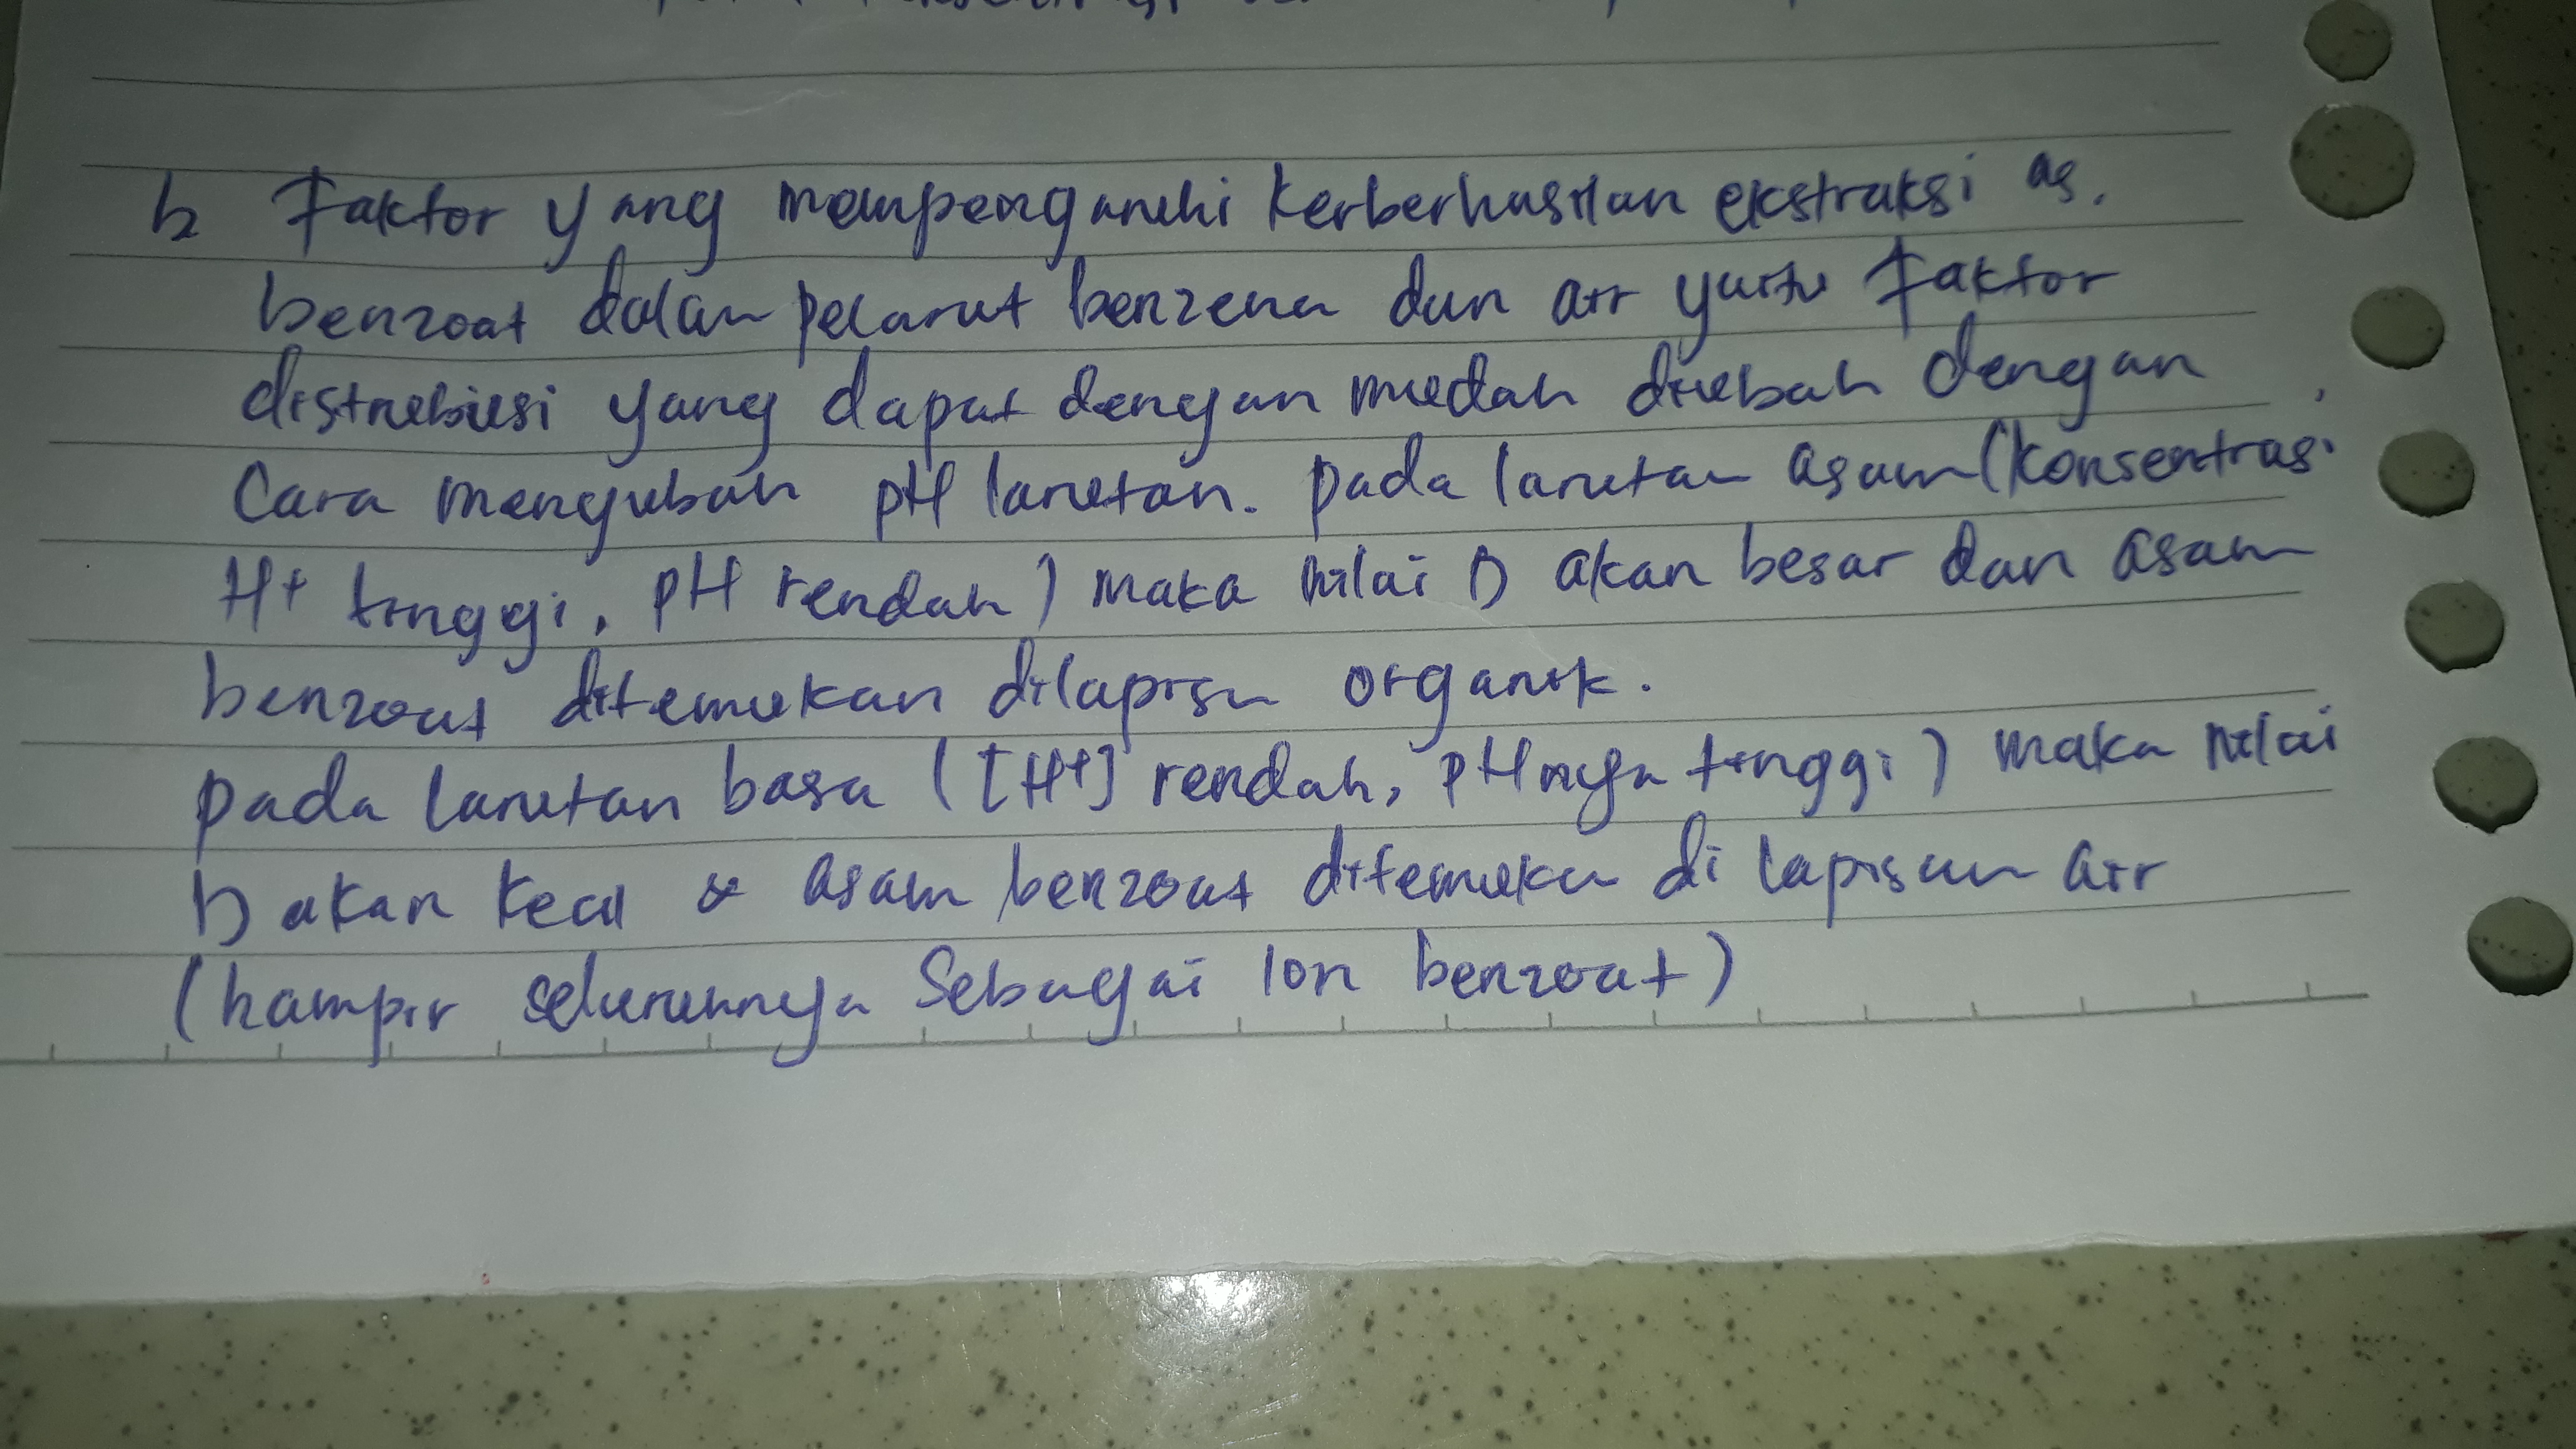 b Faktor yang mempengaruhi kerberhasilan ekstraksi as.
benzoat dalam pelarut benzena dan air yaitu faktor
distribusi yang dapat dengan mudah diubah dengan
Cara mengubah pH larutan. pada larutan asam (konsentrasi
H+ tinggi, pH rendah) maka nilai D akan besar dan asam
benzoat ditemukan dilapisn organik.
pada larutan basa ([H+] rendah, pHnya tinggi) maka nilai
D akan kecil & asam benzoat ditemukan di lapisan air
(hampir seluruhnya Sebagai ion benzoat)